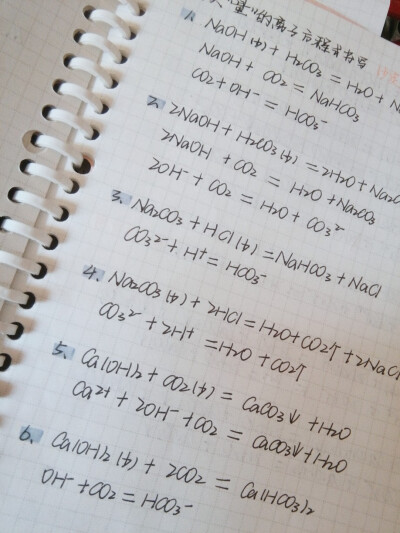 "量"的离子方程式书写
1. NaOH(少) + H₂CO₃ = H₂O + Na
NaOH + CO₂ = NaHCO₃
CO₂ + OH⁻ = HCO₃⁻
2. 2NaOH + H₂CO₃(少) = 2H₂O + Na₂CO
2NaOH + CO₂ = H₂O + Na₂CO₃
2OH⁻ + CO₂ = H₂O + CO₃²⁻
3. Na₂CO₃ + HCl(少) = NaHCO₃ + NaCl
CO₃²⁻ + H⁺ = HCO₃⁻
4. Na₂CO₃(少) + 2HCl = H₂O + CO₂↑ + 2NaCl
CO₃²⁻ + 2H⁺ = H₂O + CO₂↑
5. Ca(OH)₂ + CO₂(少) = CaCO₃↓ + H₂O
Ca²⁺ + 2OH⁻ + CO₂ = CaCO₃↓ + H₂O
6. Ca(OH)₂(少) + 2CO₂ = Ca(HCO₃)₂
OH⁻ + CO₂ = HCO₃⁻